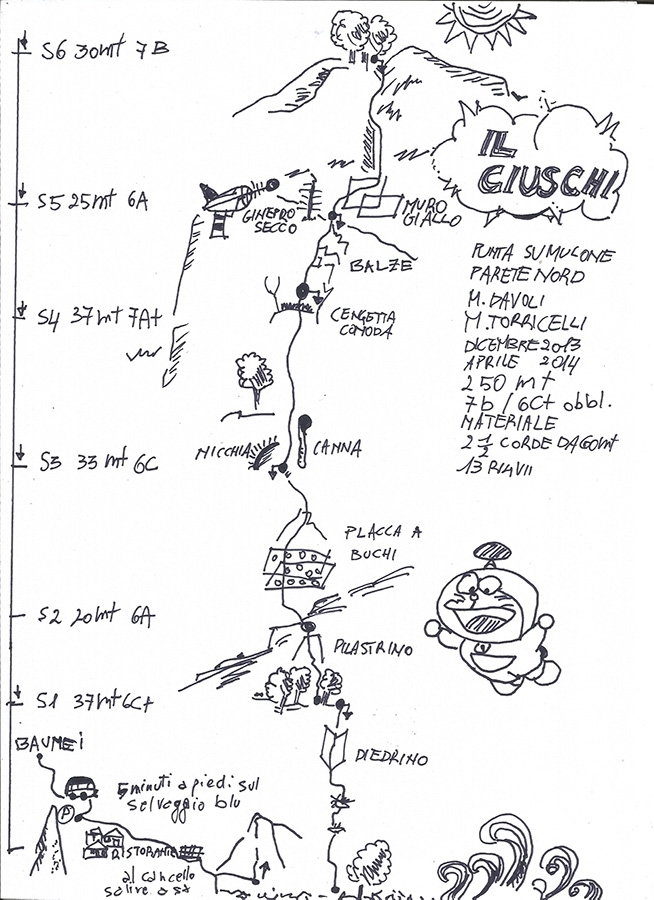 S6 30mt 7B
IL
GIUSCHI
S5 25mt 6A
GINEPRO
SECCO
MURO
GIALLO
PUNTA SU MULONE
PARETE NORD
M. DAVOLI
M. TORRICELLI
DICEMBRE 2013
APRILE 2014
250 mt
7b / 6C+ obbl.
MATERIALE
2 1/2 CORDE DA 60mt
13 RINVII
BALZE
S4 37mt 7A+
CENGETTA
COMODA
NICCHIA
CANNA
S3 33mt 6C
PLACCA A
BUCHI
S2 20mt 6A
PILASTRINO
S1 37mt 6C+
BAUNEI
DIEDRINO
5 minuti a piedi sul
selvaggio blu
P
RISTORANTE
al cancello
salire a sx